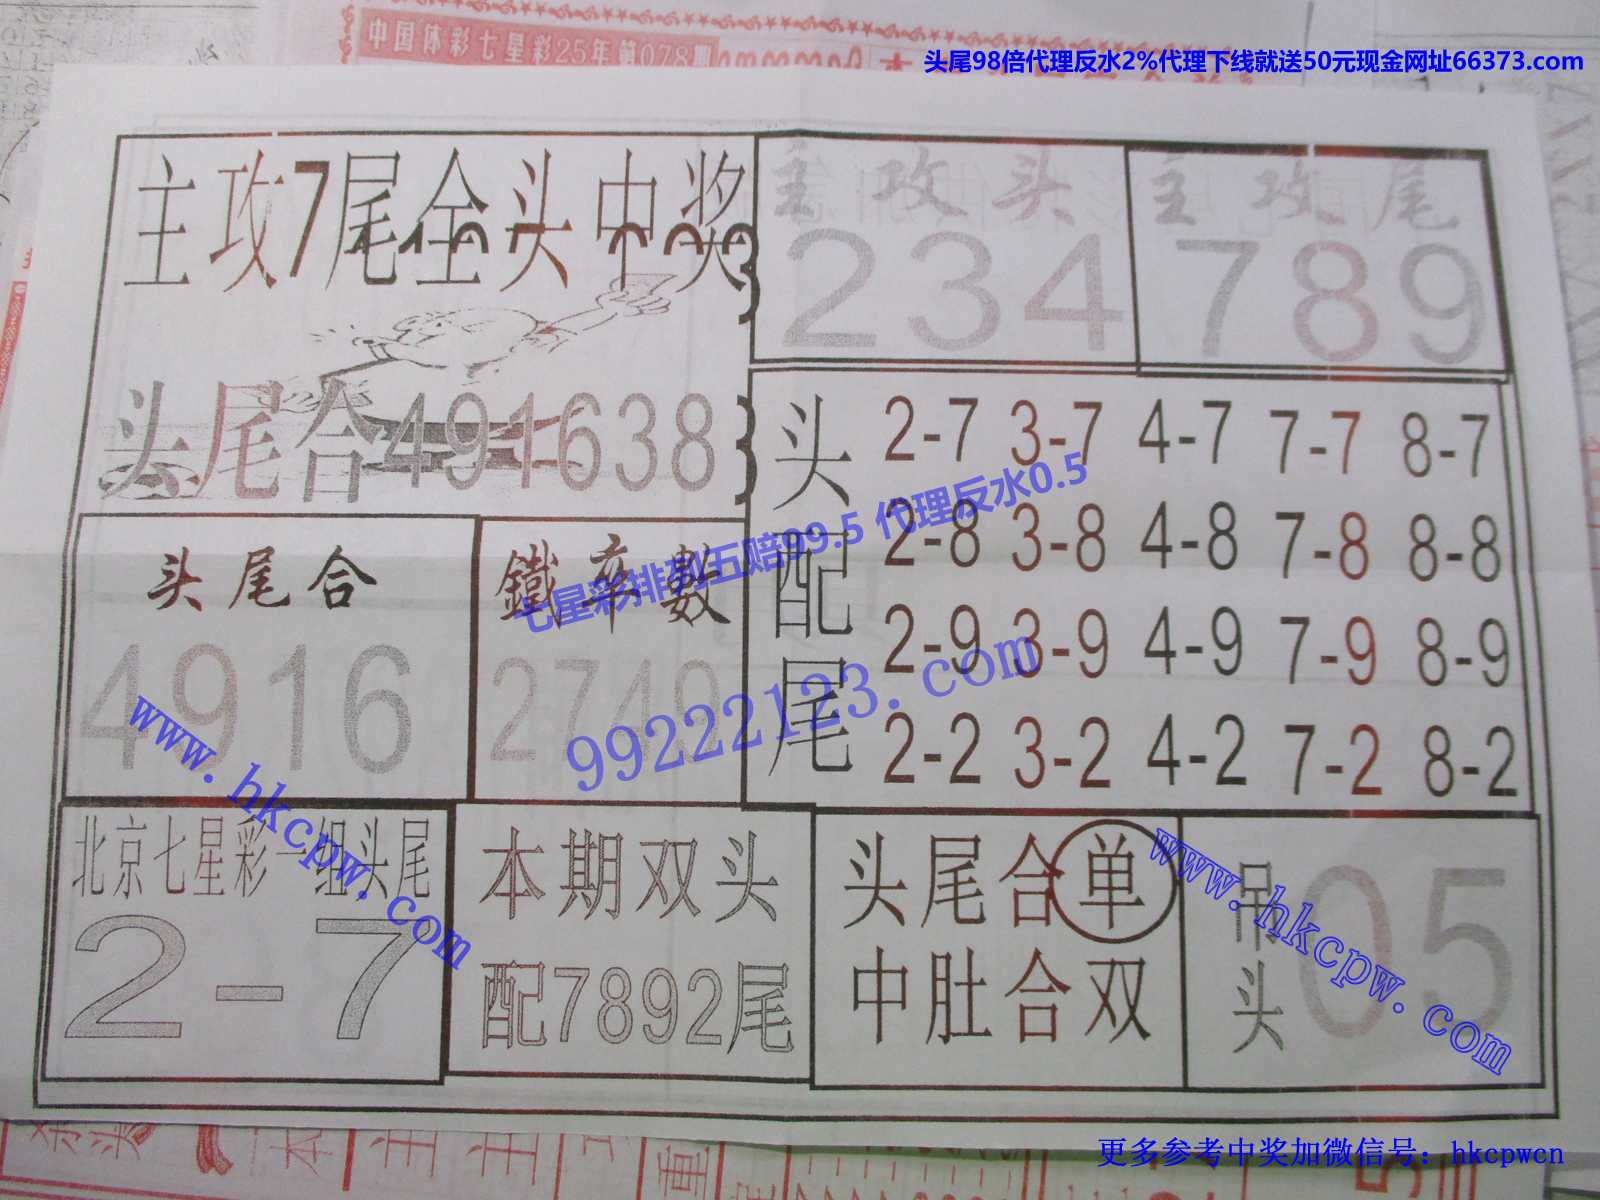 中国体彩七星彩25年第078期
头尾98倍代理反水2%代理下线就送50元现金网址66373.com
主攻7尾全头中奖
主攻头
234
主攻尾
789
头尾合491638
头配尾
2-7 3-7 4-7 7-7 8-7
2-8 3-8 4-8 7-8 8-8
2-9 3-9 4-9 7-9 8-9
2-2 3-2 4-2 7-2 8-2
头尾合
4916
鐵率數
2749
七星彩排列五赔99.5 代理反水0.5
99222123.com
www.hkcpw.com
北京七星彩一组头尾
2-7
本期双头
配7892尾
头尾合单
中肚合双
吊头
05
www.hkcpw.com
更多参考中奖加微信号：hkcpwcn